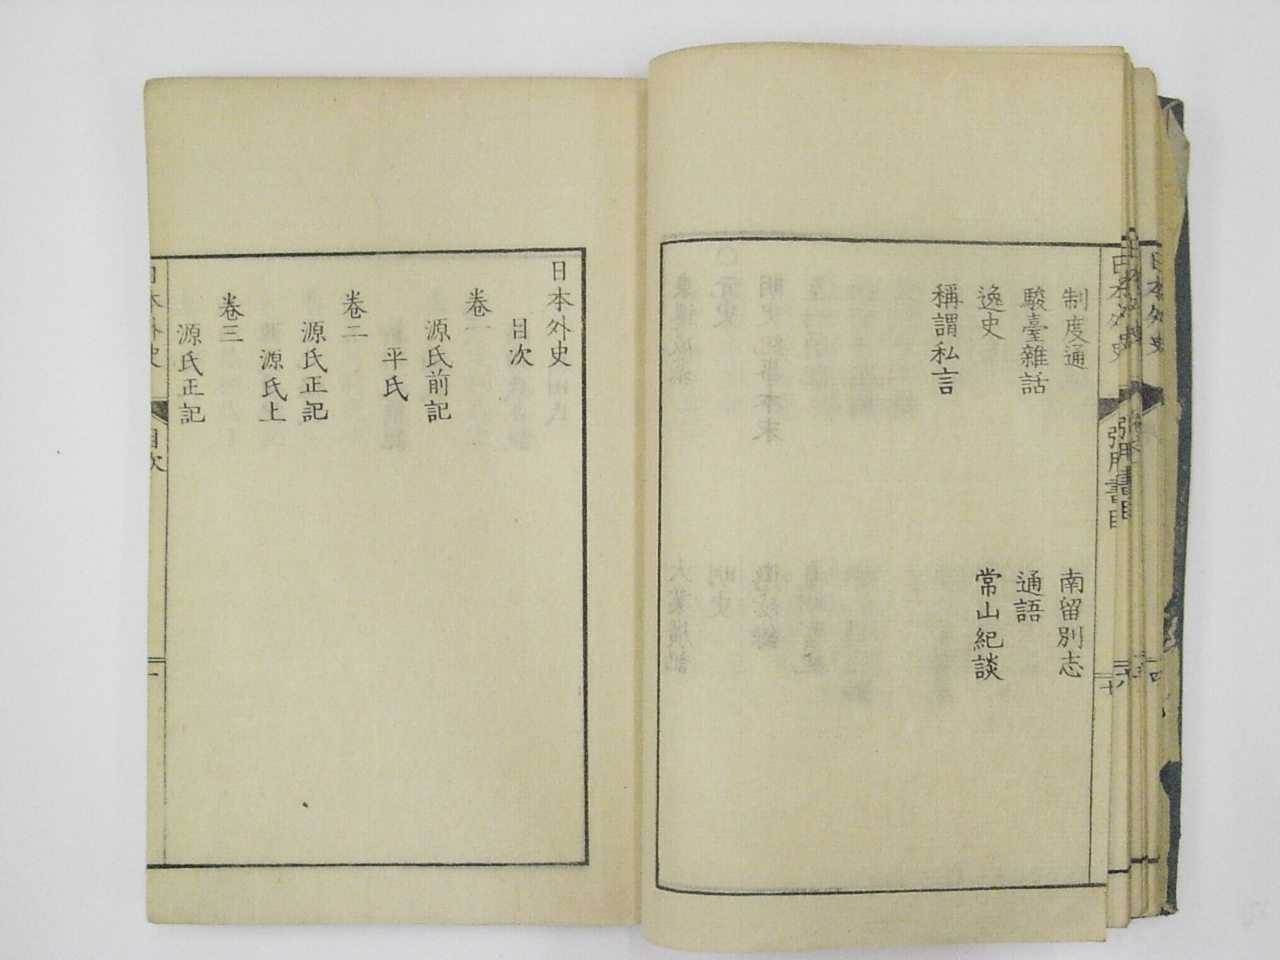 制度通
南留別志
駿臺雜話
通語
逸史
常山紀談
稱謂私言
日本外史
引用書目
十
日本外史
目次
卷一
源氏前記
平氏
卷二
源氏正記
源氏上
卷三
源氏正記
日本外史
目次
一